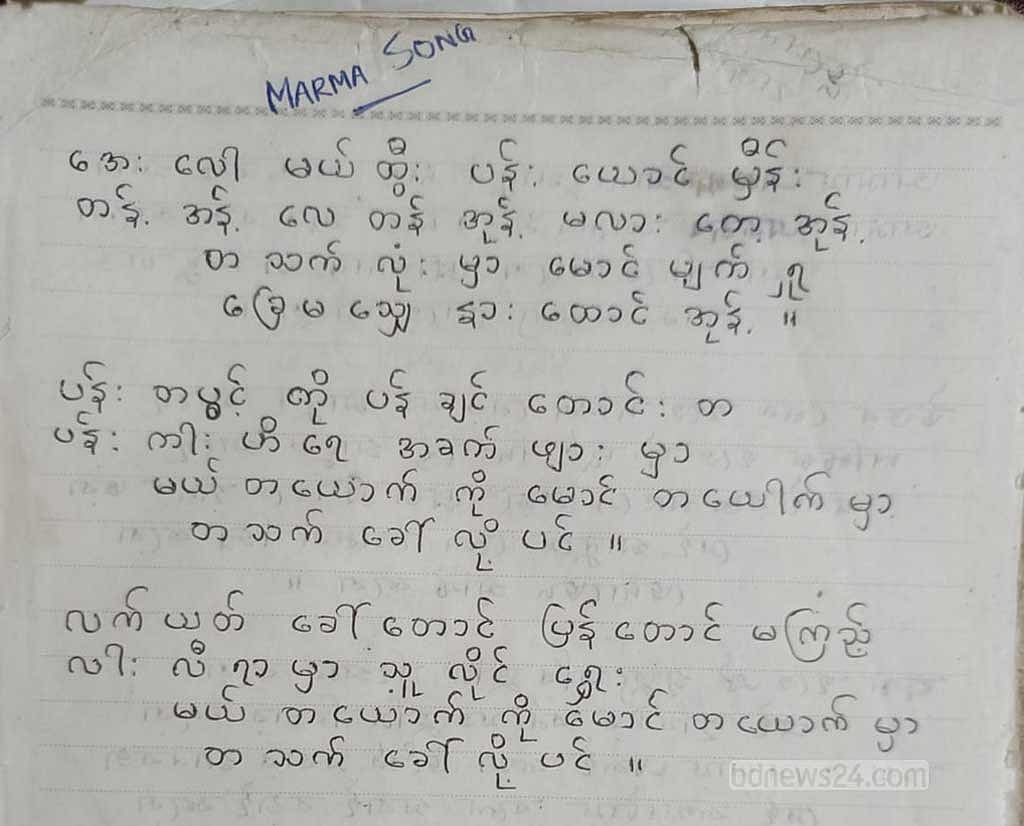 MARMA SONG
အေး လေါ မယ် ထွီး ပန်း ယောင် မှိန်း
တန့် အန့် လေ တန် အုန့် မလား တော့ အုန့်
တ သက် လုံး မှာ မောင် မျက် ရှု
ခြေ မ သျှေ နား ထောင် အုန့် ။
ပန်း တပွင့် ကို ပန် ချင် တောင်း တ
ပန်း ကါး ဟိ ရေ အခက် ဖျား မှာ
မယ် တယောက် ကို မောင် တယေါက် မှာ
တ သက် ခေါ် လို့ ပင် ။
လက် ယတ် ခေါ် တောင် ပြန် တောင် မကြည့်
လါး လီ ရာ မှာ သူ လိုင် ရှေး
မယ် တယောက် ကို မောင် တယောက် မှာ
တ သက် ခေါ် လို့ ပင် ။
bdnews24.com